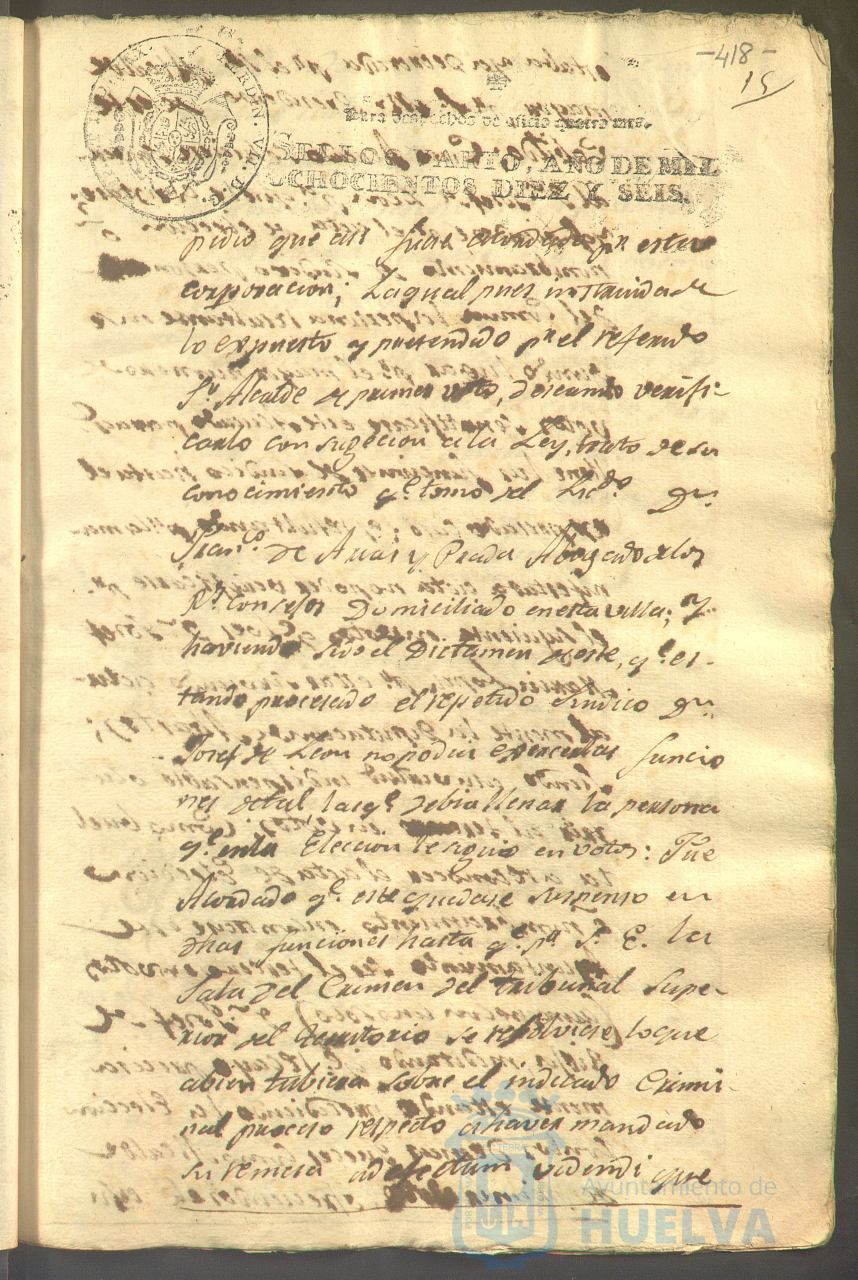 -418-
15
Para despachos de oficio quatro mrs.
SELLO QUARTO, AÑO DE MIL
OCHOCIENTOS DIEZ Y SEIS.
pidio que asi fuese acordado pr esta
corporacion; La qual pues instruida de
lo expuesto y pretendido pr el referido
Sr. Alcalde de primer voto, deseando verifi-
carlo con sugecion a la Ley, trato de su
conocimiento qe. tomo del Licdo. Dn.
Franco. de Arias y Prada Abogado de los
Rs. Consejos Domiciliado en esta villa; Y
haviendo sido el Dictamen de este, qe. es-
tando procesado el repetido Sindico Dn.
Josef de Leon no podia exercer las funcio
nes de tal las qe. debia llenar la persona
qe. en la Eleccion le siguio en votos: Fue
Acordado qe. este quedase suspenso en
dhas funciones hasta qe. pr. S. E. los
Sala del Crimen del tribunal Supe-
rior del Territorio se resolviese lo que
abien tubiera sobre el indicado Crimi-
nal proceso respecto a haver mandado
su remesa ad efectum videndi que
Ayuntamiento de
HUELVA